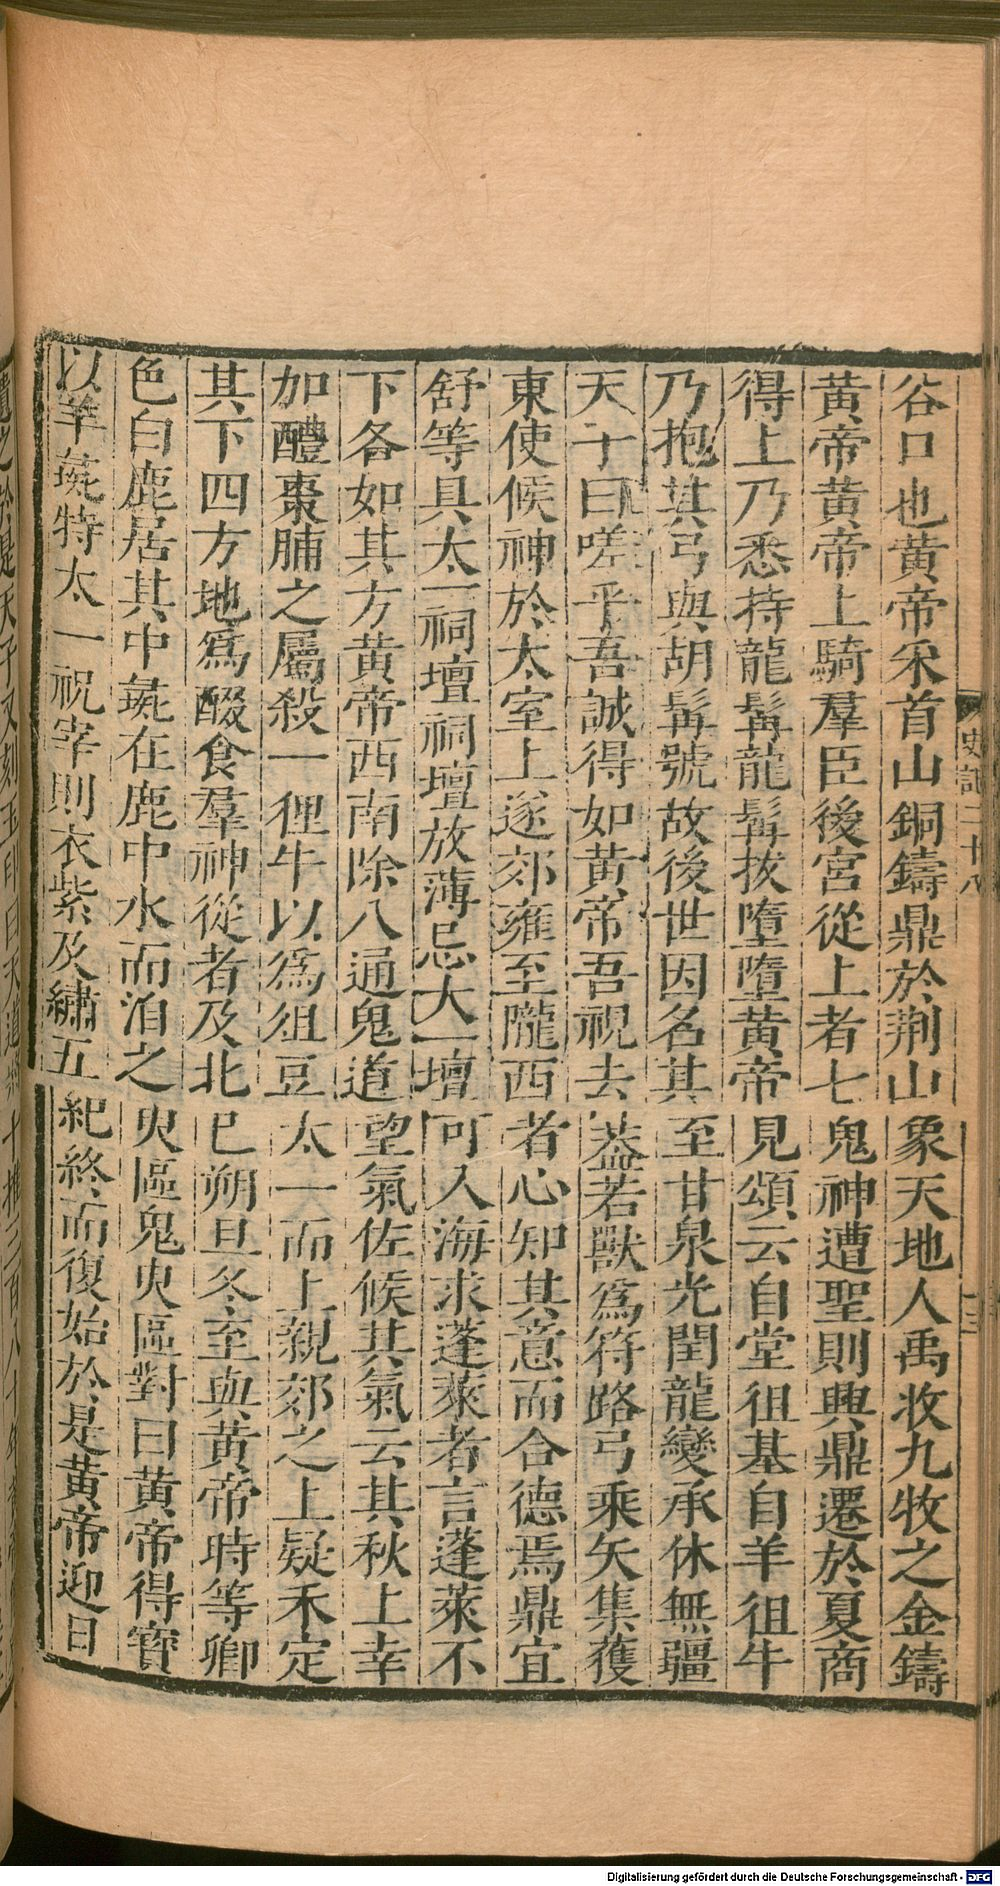 史記二十八
十三
谷口也黄帝采首山銅鑄鼎於荆山象天地人禹收九牧之金鑄
黄帝黄帝上騎羣臣後宮從上者七鬼神遭聖則興鼎遷於夏商
得上乃悉持龍髯龍髯拔墮墮黄帝見頌云自堂徂基自羊徂牛
乃抱其弓與胡髯號故後世因名其至甘泉光閏龍變承休無疆
天子曰嗟乎吾誠得如黄帝吾視去蓋若獸爲符路弓乘矢集獲
東使候神於太室上遂郊雍至隴西者心知其意而合德焉鼎宜
舒等具太一祠壇祠壇放薄忌太一壇可入海求蓬萊者言蓬萊不
下各如其方黄帝西南除八通鬼道望氣佐候其氣云其秋上幸
加醴棗脯之屬殺一貍牛以爲俎豆太一而上親郊之上疑禾定
其下四方地爲醊食羣神從者及北巳朔旦冬至與黄帝時等卿
色白鹿居其中彘在鹿中水而洎之臾區鬼臾區對曰黄帝得寳
以羊彘特太一祝宰則衣紫及繡五紀終而復始於是黄帝迎日
Digitalisierung gefördert durch die Deutsche Forschungsgemeinschaft - DFG